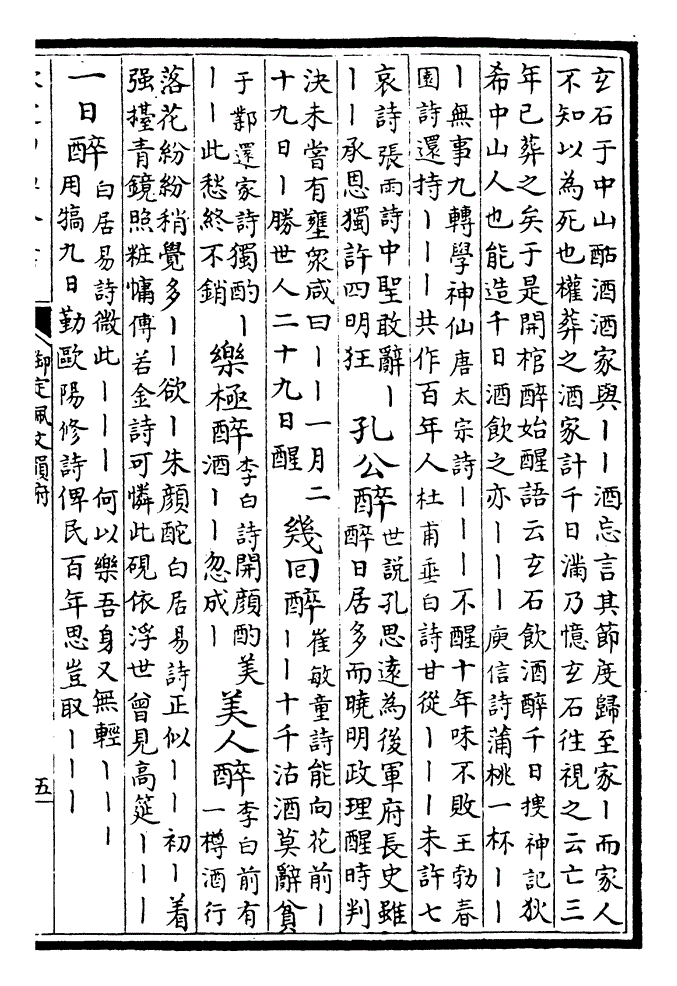 玄石于中山酤酒酒家與丨丨酒忘言其節度歸至家丨而家人
不知以為死也權葬之酒家計千日滿乃憶玄石徃視之云亡三
年已葬之矣于是開棺醉始醒語云玄石飲酒醉千日搜神記狄
希中山人也能造千日酒飲之亦丨丨丨庾信詩蒲桃一杯丨丨
丨無事九轉學神仙唐太宗詩丨丨丨不醒十年味不敗王勃春
園詩還持丨丨丨共作百年人杜甫垂白詩甘從丨丨丨未許七
哀詩張雨詩中聖敢辭丨
丨丨承恩獨許四明狂
孔公醉
世說孔思遠為後軍府長史雖
醉日居多而曉明政理醒時判
決未嘗有壅衆咸曰丨丨一月二
十九日丨勝世人二十九日醒
幾回醉
崔敏童詩能向花前丨
丨丨十千沽酒莫辭貧
于鄴還家詩獨酌丨
丨丨此愁終不銷
樂極醉
李白詩開顔酌美
酒丨丨忽成丨
美人醉
李白前有
一樽酒行
落花紛紛稍覺多丨丨欲丨朱顔酡白居易詩正似丨丨初丨着
强擡青鏡照粧慵傅若金詩可憐此硯依浮世曾見高筵丨丨丨
一日醉
白居易詩微此丨丨丨何以樂吾身又無輕丨丨丨
用犒九日勤歐陽修詩俾民百年思豈取丨丨丨
御定佩文韻府
五